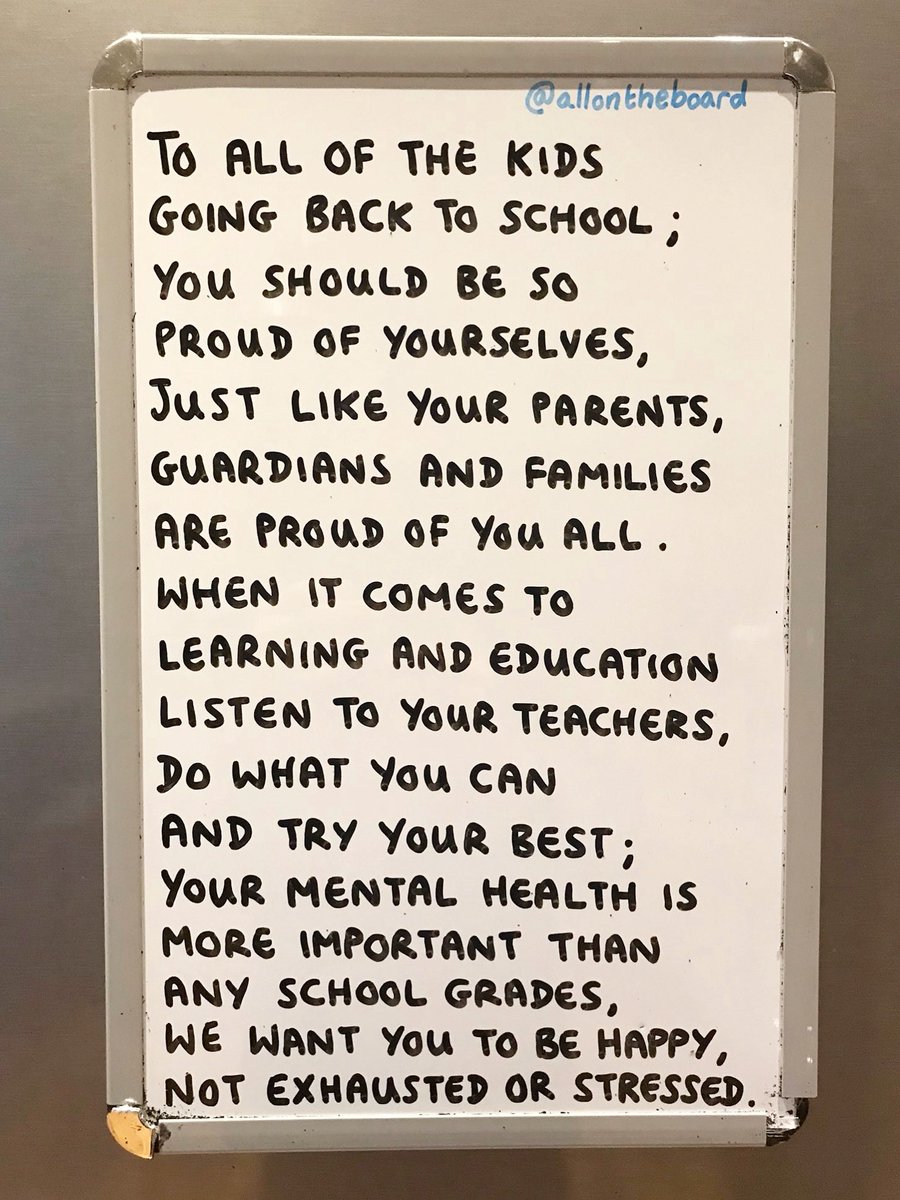 @allontheboard
TO ALL OF THE KIDS
GOING BACK TO SCHOOL;
YOU SHOULD BE SO
PROUD OF YOURSELVES,
JUST LIKE YOUR PARENTS,
GUARDIANS AND FAMILIES
ARE PROUD OF YOU ALL.
WHEN IT COMES TO
LEARNING AND EDUCATION
LISTEN TO YOUR TEACHERS,
DO WHAT YOU CAN
AND TRY YOUR BEST;
YOUR MENTAL HEALTH IS
MORE IMPORTANT THAN
ANY SCHOOL GRADES,
WE WANT YOU TO BE HAPPY,
NOT EXHAUSTED OR STRESSED.